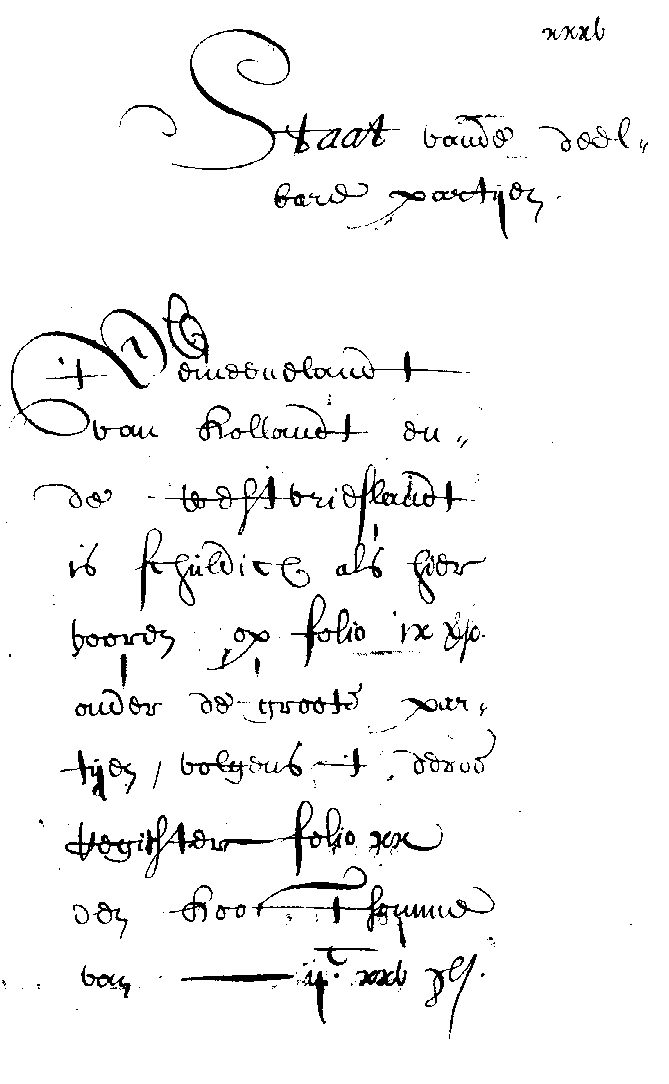 xxxv
Staat vande deel„
bare partijen.
't Gemeenelandt
van Hollandt en„
de Westvrieslandt
is schuldich als hier
vooren op folio ix
onder de groote par„
tijen / volgens t
Register folio xx
den somme
van ijᶜ. xxv